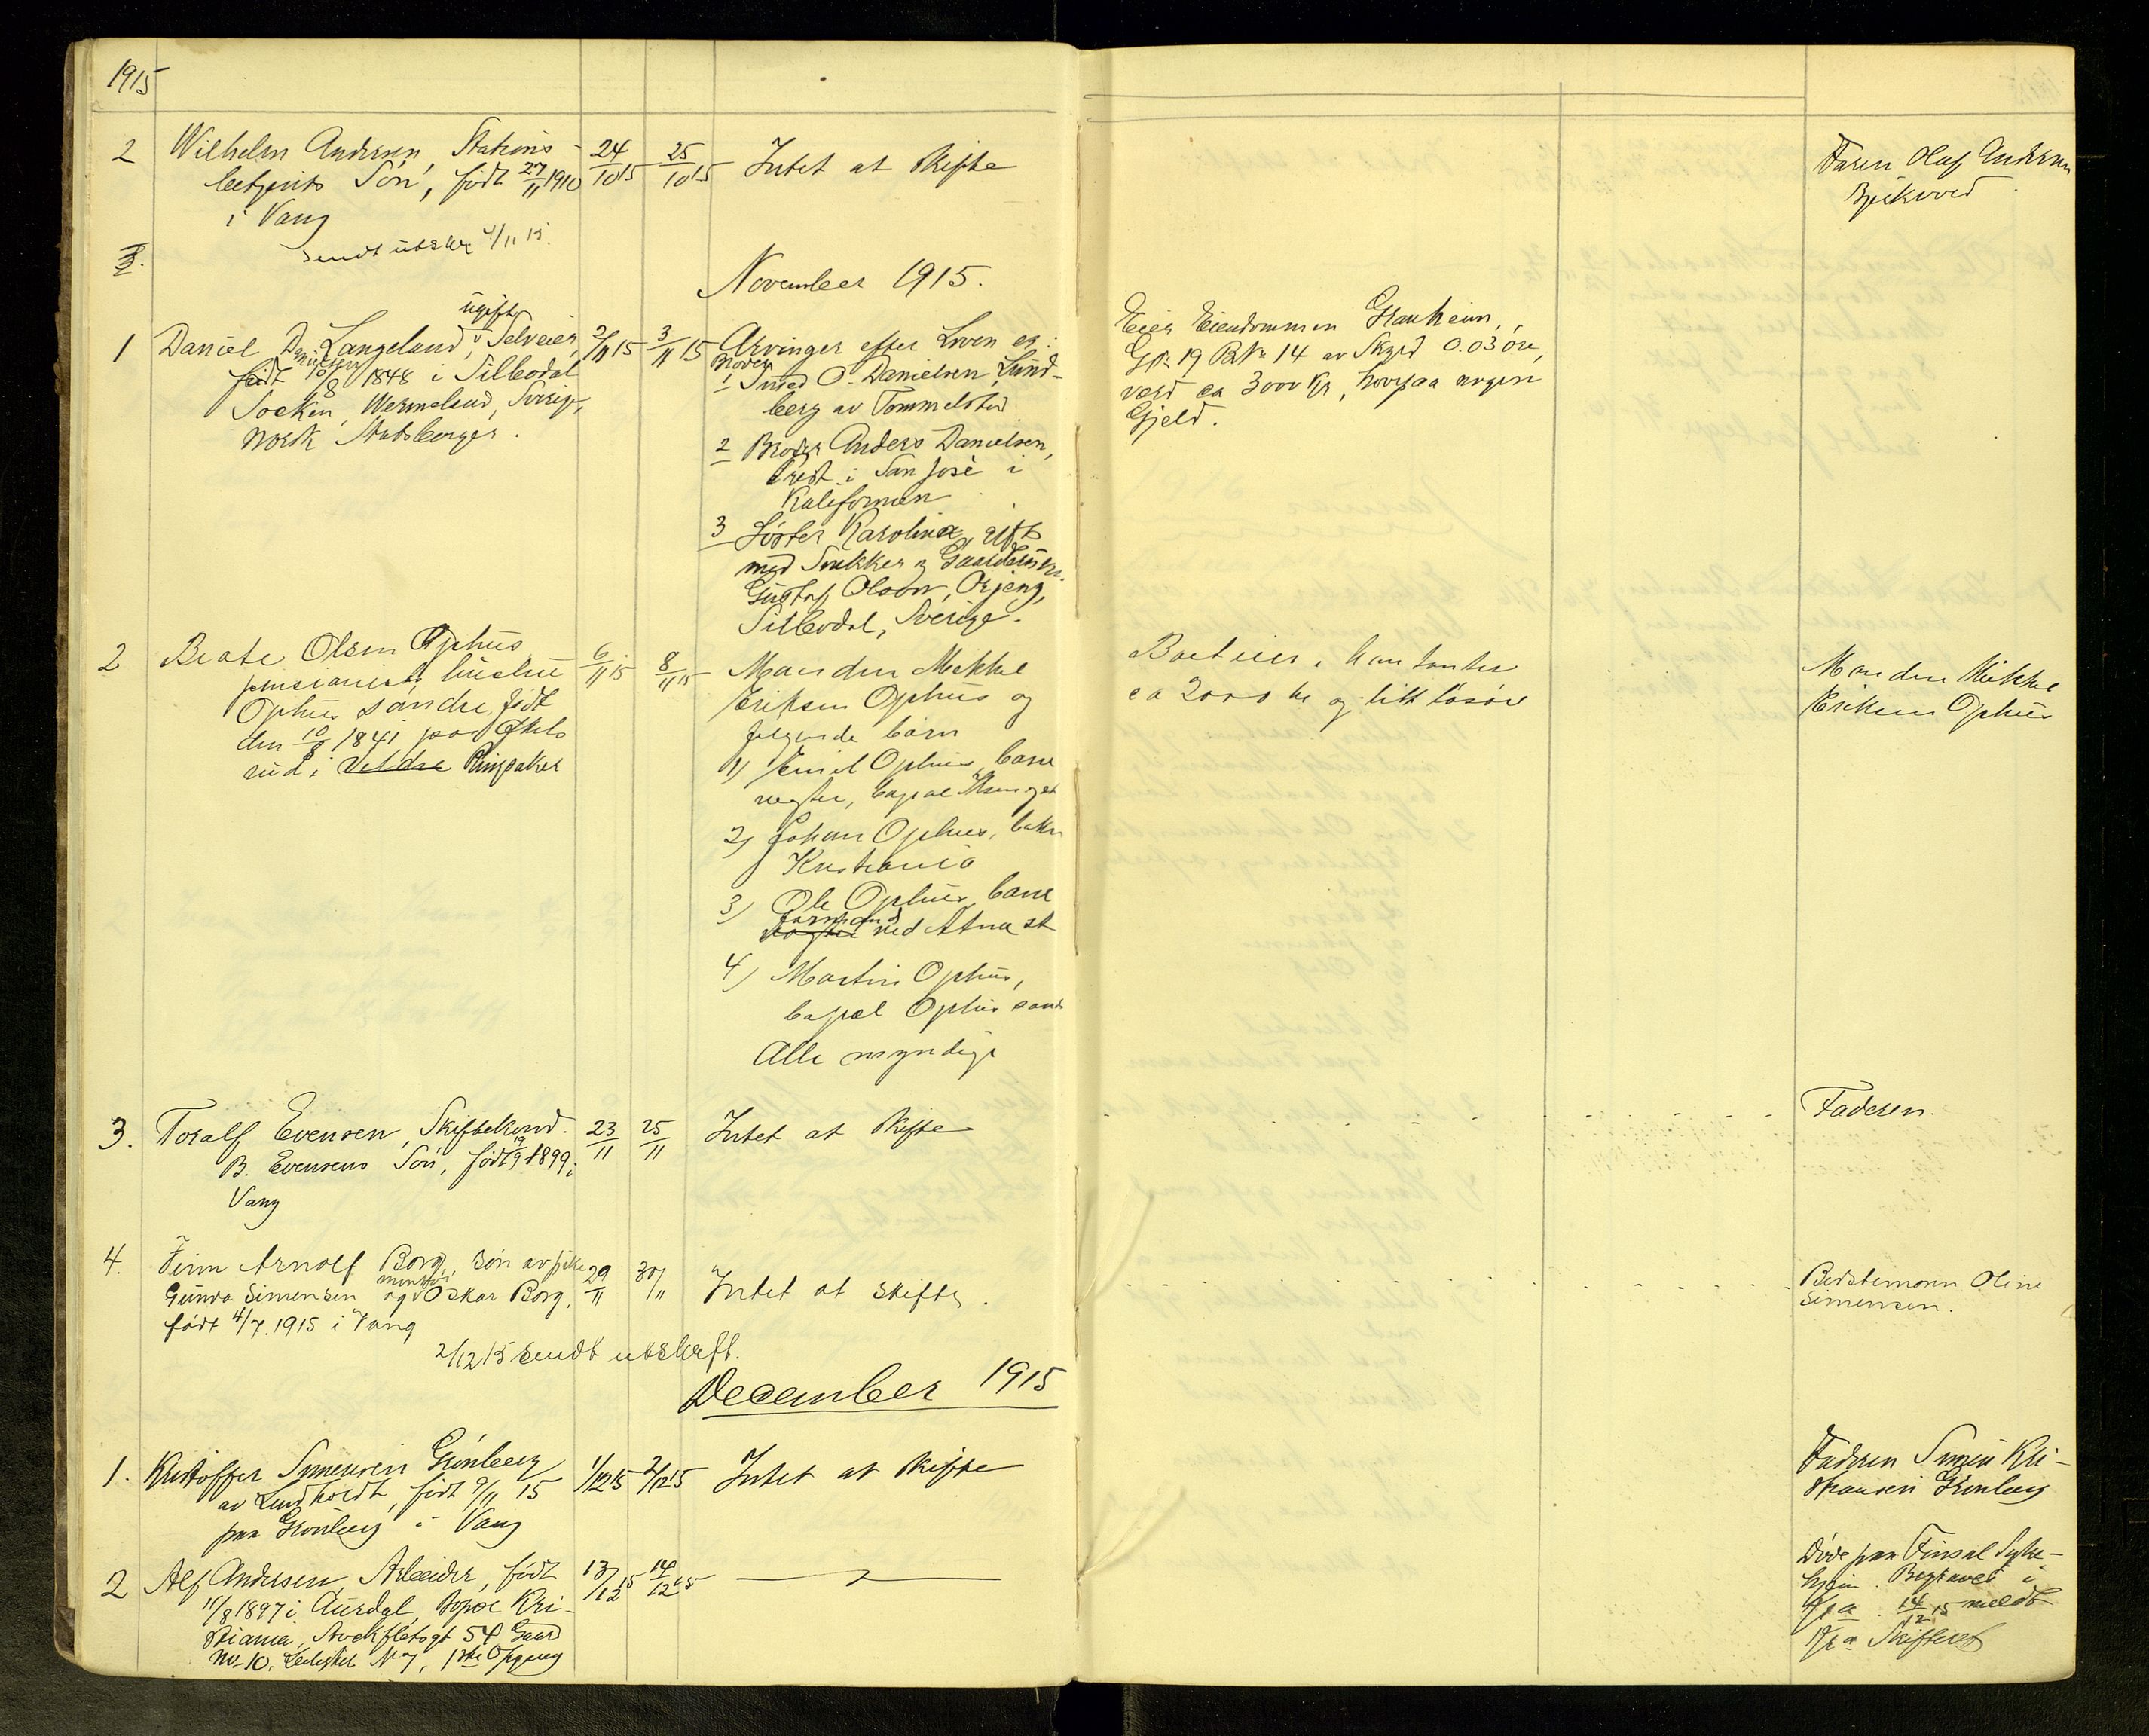 1915
2 Wilhelm Andersen, Stations-
betjents Søn, født 27/11 1910
i Vang
24/10 15 25/10 15 Intet at skifte
Faren Olaf Andersen
sendt utskr 4/11 15.
November 1915.
1 Daniel Danielsen Langeland, ugift Selveier,
født 10/8 1848 i Silbodal
Socken, Wermeland, Sverige,
norsk Statsborger.
2/11 15 3/11 15 Arvinger efter Loven er:
1 Broder Smed O. Danielsen Lund-
berg av Tommelstad
2 Broder Anders Danielsen,
Præst i San José i
Kalifornien
3 Søster Karolina, gift
med Snekker og Gaardbruker
Gustaf Olsson, Årjeng,
Silbodal, Sverige.
Eier Eiendommen Granheim,
Gno 19 BNo 14 av Skyld 0.03 øre,
værd ca 3000 Kr, hvorpaa ingen
Gjeld.
2 Beate Olsen Ophus
pensionist, hustru
Ophus søndre, født
den 10/8 1841 paa
rud i Veldre Ringsaker
6/11 15 8/11 15 Manden Mikkel
Eriksen Ophus og
følgende børn
1) Emil Ophus, bane
vogter, bopæl
2) Johan Ophus, baker
Kristiania
3) Ole Ophus, bane
vogter formand ved Atna st
4) Martin Ophus,
bopæl Ophus sand
Alle myndige
Boet eier i kontanter
ca 2000 kr og litt løsøre
Manden Mikkel
Eriksen Ophus
3. Toralf Evensen, Skiftekond.
B. Evensens Søn, født 19/9 1899 i
Vang
23/11 25/11 Intet at skifte
Faderen.
4. Finn Arnolf Borg, søn av pike
Gunda Simensen og montør Oskar Borg,
født 4/7. 1915 i Vang
29/11 30/11 Intet at skifte.
Bedstemoren Oline
Simensen.
2/12 15 sendt utskrift.
December 1915
1. Kristoffer Simensen Grønberg
av Lundholdt, født 9/11 15
paa Grønberg i Vang
1/12 15 2/12 15 Intet at skifte
Faderen Simen Kri-
stiansen Grønberg
2 Alf Andersen, Arbeider, født
11/8 1897 i Aurdal, Bopæl Kri-
stiania, Stockfletsgt 54 Gaard
No 10, Leilighet No 7, 1ste Opgang
13/12 15 14/12 15
Døde paa Finsal Syke-
hjem. Begravet i
Kr.a. 14/12 15 meldt
Kr.a Skifteret